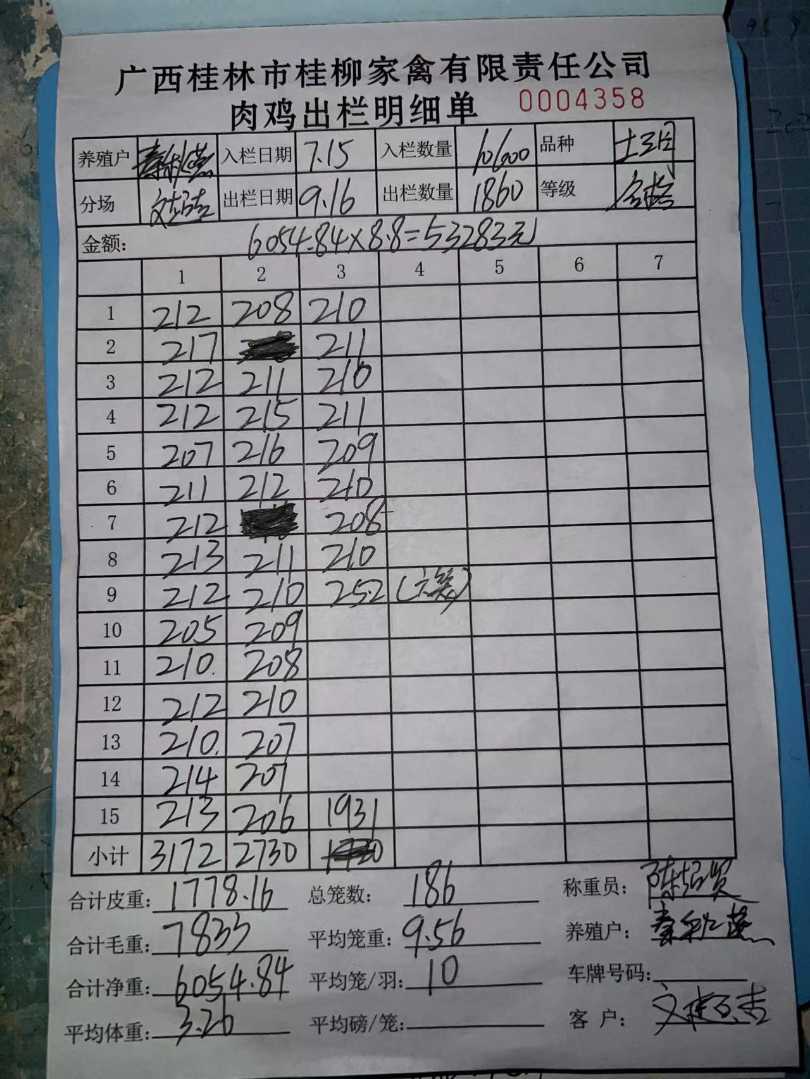 广西桂林市桂柳家禽有限责任公司
肉鸡出栏明细单 0004358
养殖户 入栏日期 7.15 入栏数量 10600 品种 土三
分场 出栏日期 9.16 出栏数量 1860 等级 合格
金额: 6054.84×8.8=53283元
1 2 3 4 5 6 7
1 212 208 210
2 217 211
3 212 211 210
4 212 215 211
5 207 216 209
6 211 212 210
7 212 208
8 213 211 210
9 212 210 252 (六笼)
10 205 209
11 210. 208
12 212 210
13 210. 207
14 214 207
15 213 206 1931
小计 3172 2730
合计皮重: 1778.16 总笼数: 186 称重员:
合计毛重: 7833 平均笼重: 9.56 养殖户:
合计净重: 6054.84 平均笼/羽: 10 车牌号码:
平均体重: 3.26 平均磅/笼: 客 户: